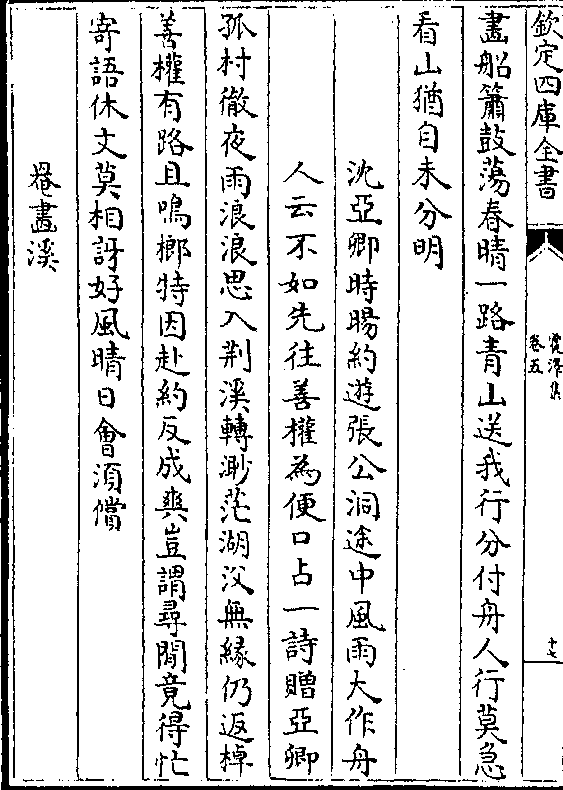 欽定四庫全書
霞外集
卷五
十七
畫船簫鼓蕩春晴一路青山送我行分付舟人行莫急
看山猶自未分明
沈亞卿時暘約遊張公洞途中風雨大作舟
人云不如先往善權為便口占一詩贈亞卿
孤村徹夜雨浪浪思入荆溪轉渺茫湖㳇無緣仍返棹
善權有路且鳴榔特因赴約反成爽豈謂尋閒竟得忙
寄語休文莫相訝好風晴日會湏償
罨畫溪